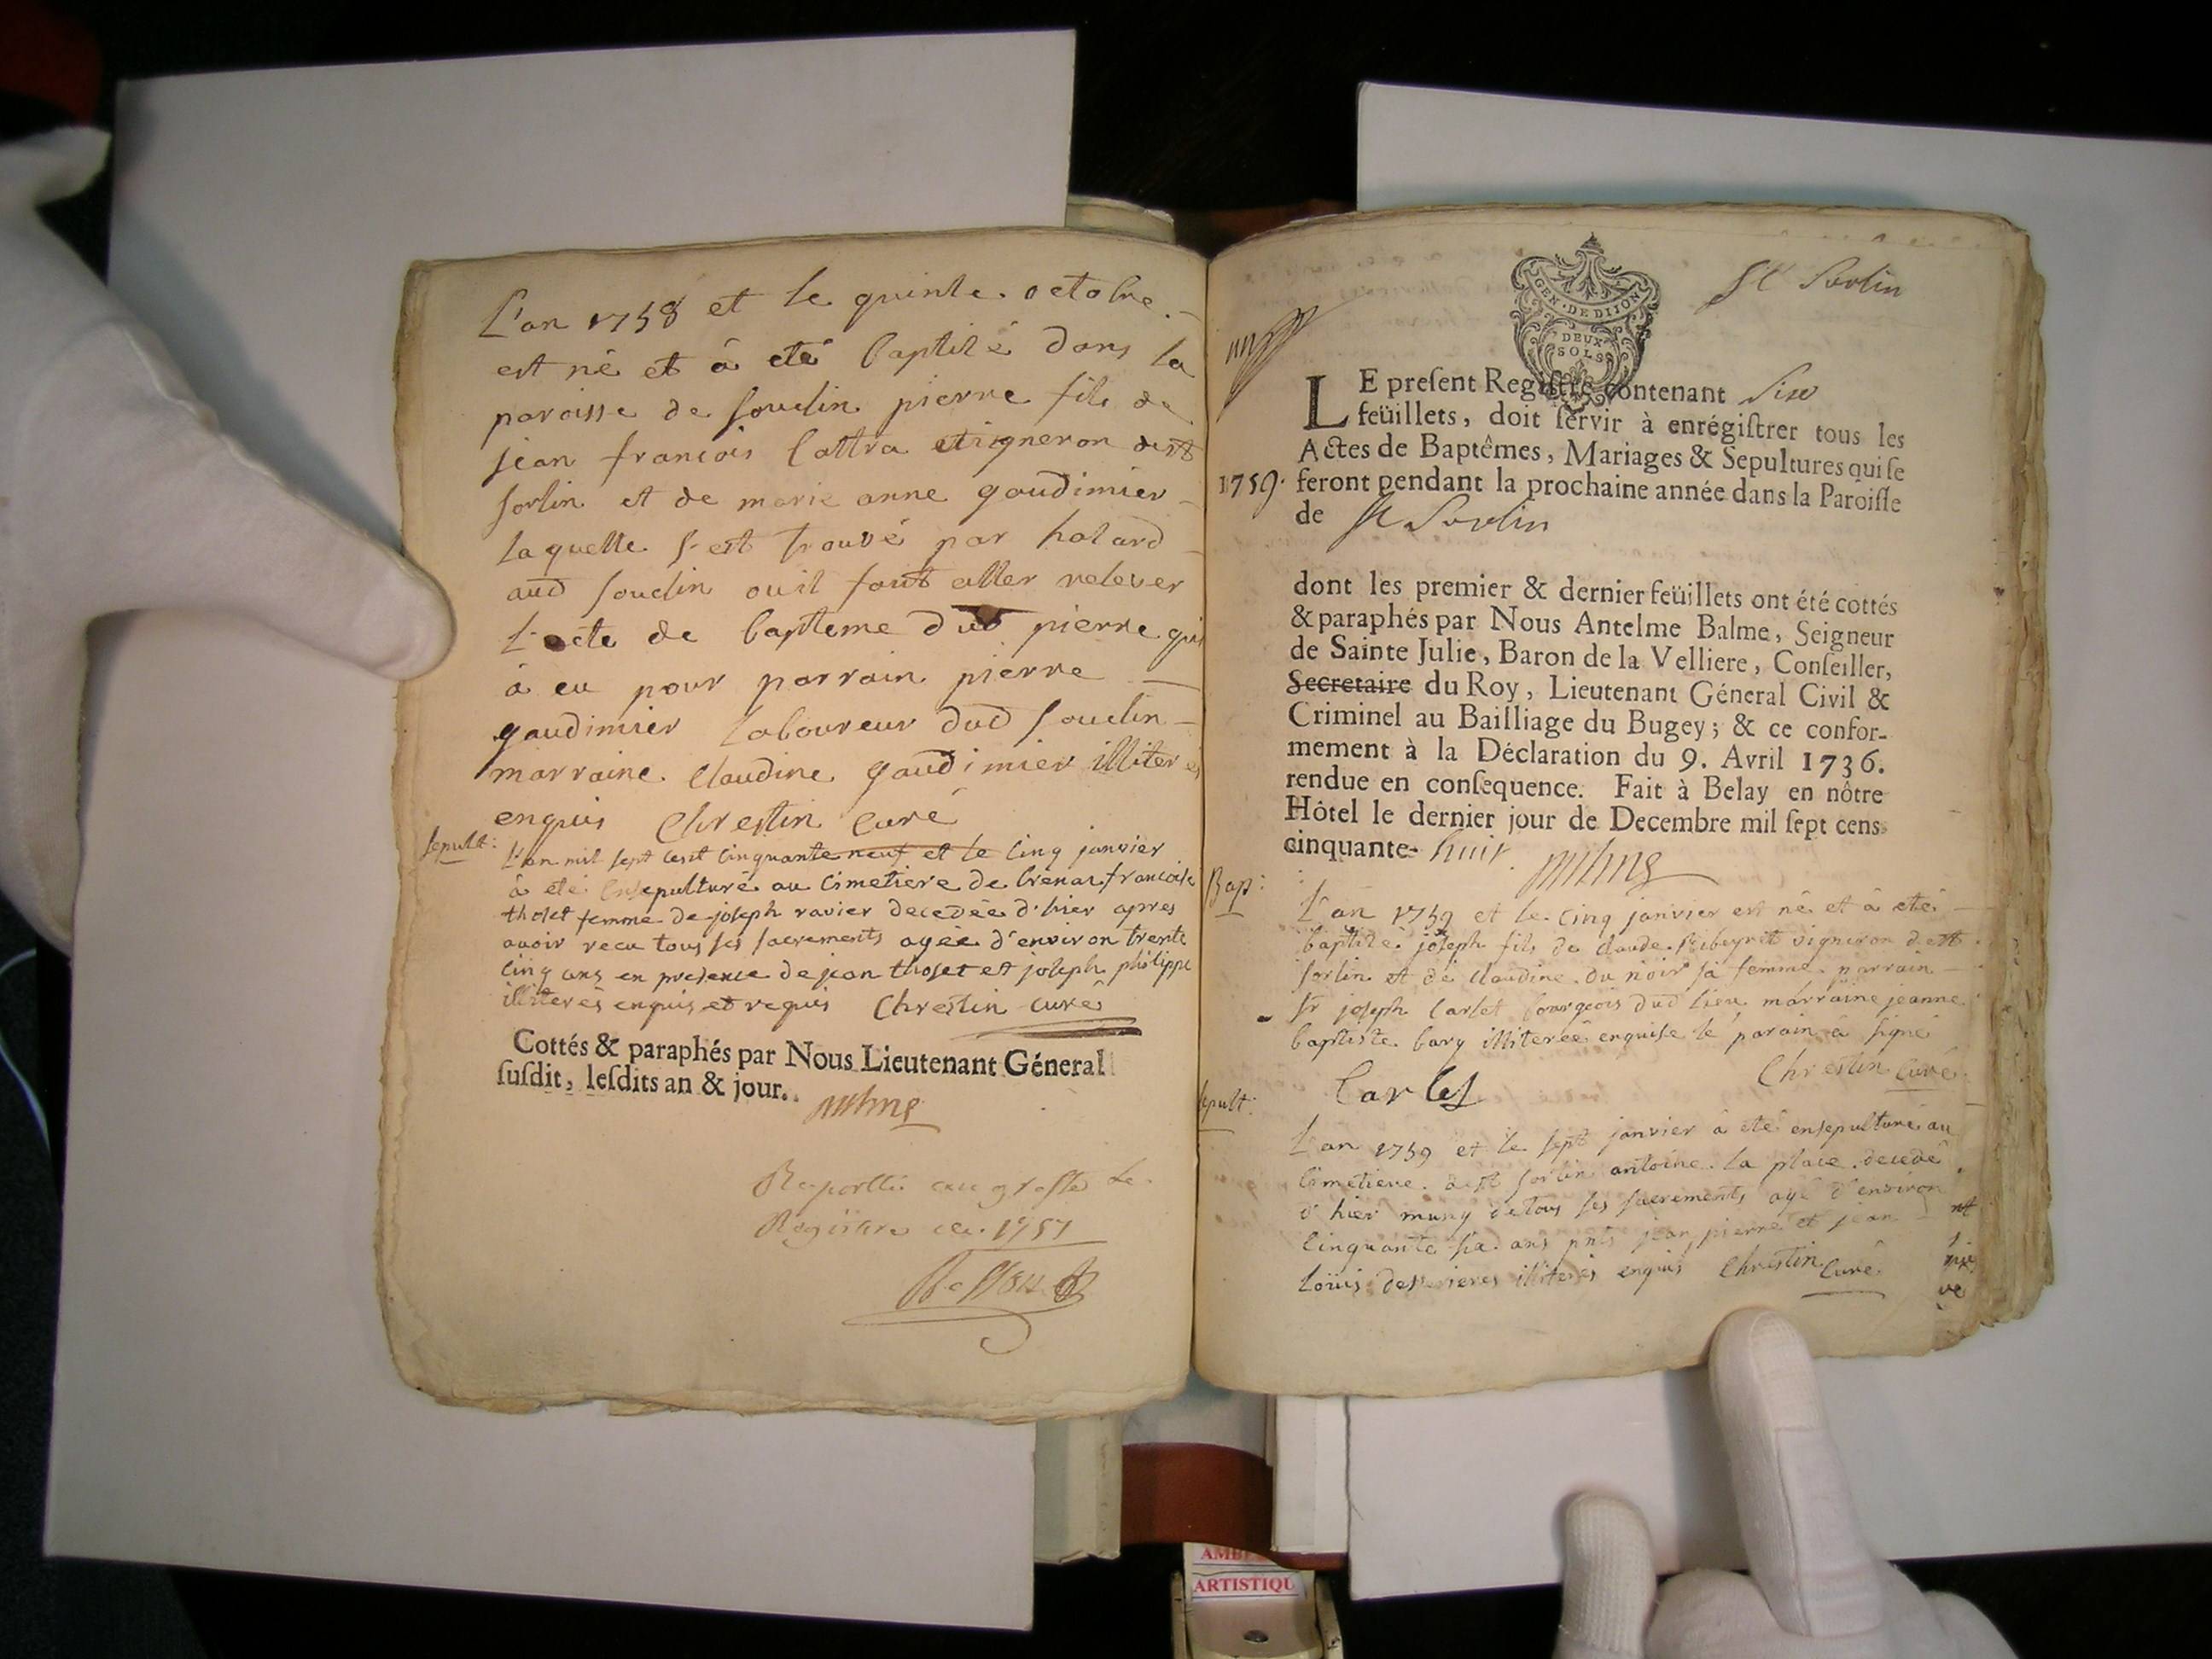 L'an 1758 et le quinze octobre
est né et à eté baptisé dans la
paroisse de souclin pierre fils de
jean francois vigneron de st
sorlin et de marie anne gaudimier
laquelle s'est trouvé par hasard
aud souclin ou il faut aller relever
l'acte de bapteme dud pierre qui
à eu pour parrain pierre
gaudimier laboureur dud souclin
marraine claudine gaudimier illiterés
enquis Chrestin curé
sepult:
L'an mil sept cent cinquante neuf et le cinq janvier
à eté ensepulturé au cimetiere de francoise
thoset femme de joseph ravier decedée d'hier apres
avoir recu tous ses sacrements agée d'environ trente
cinq ans en presence de jean thoset et joseph philippe
illiterés enquis et requis Chrestin curé
Cottés & paraphés par Nous Lieutenant Géneral
susdit, lesdits an & jour.
Raportté au greffe le
Registre de 1757
St Sorlin
GEN · DE DIJON
DEUX
SOLS
LE present Registre contenant Six
feüillets, doit servir à enrégistrer tous les
Actes de Baptêmes, Mariages & Sepultures qui se
1759. feront pendant la prochaine année dans la Paroisse
de St Sorlin
dont les premier & dernier feüillets ont été cottés
& paraphés par Nous Antelme Balme, Seigneur
de Sainte Julie, Baron de la Velliere, Conseiller,
Secretaire du Roy, Lieutenant Géneral Civil &
Criminel au Bailliage du Bugey; & ce confor-
mement à la Déclaration du 9. Avril 1736.
rendue en consequence. Fait à Belay en nôtre
Hôtel le dernier jour de Decembre mil sept cens
cinquante- huit
Bap:
L'an 1759 et le cinq janvier est né et à eté
baptisé joseph fils de claude vigneron de st
sorlin et de claudine du noir sa femme parrain
sr joseph Carlet bourgeois dud lieu marraine jeanne
baptiste bary illiterée enquise le parain à signé
Chrestin curé
Carlet
sepult:
L'an 1759 et le sept janvier à eté ensepulturé au
cimetiere de st sorlin antoine la place decedé
d'hier muny de tous ses sacrements agé d'environ
cinquante six ans pnts jean pierre et jean
loüis illiterés enquis Chrestin curé
AMB
ARTISTIQU